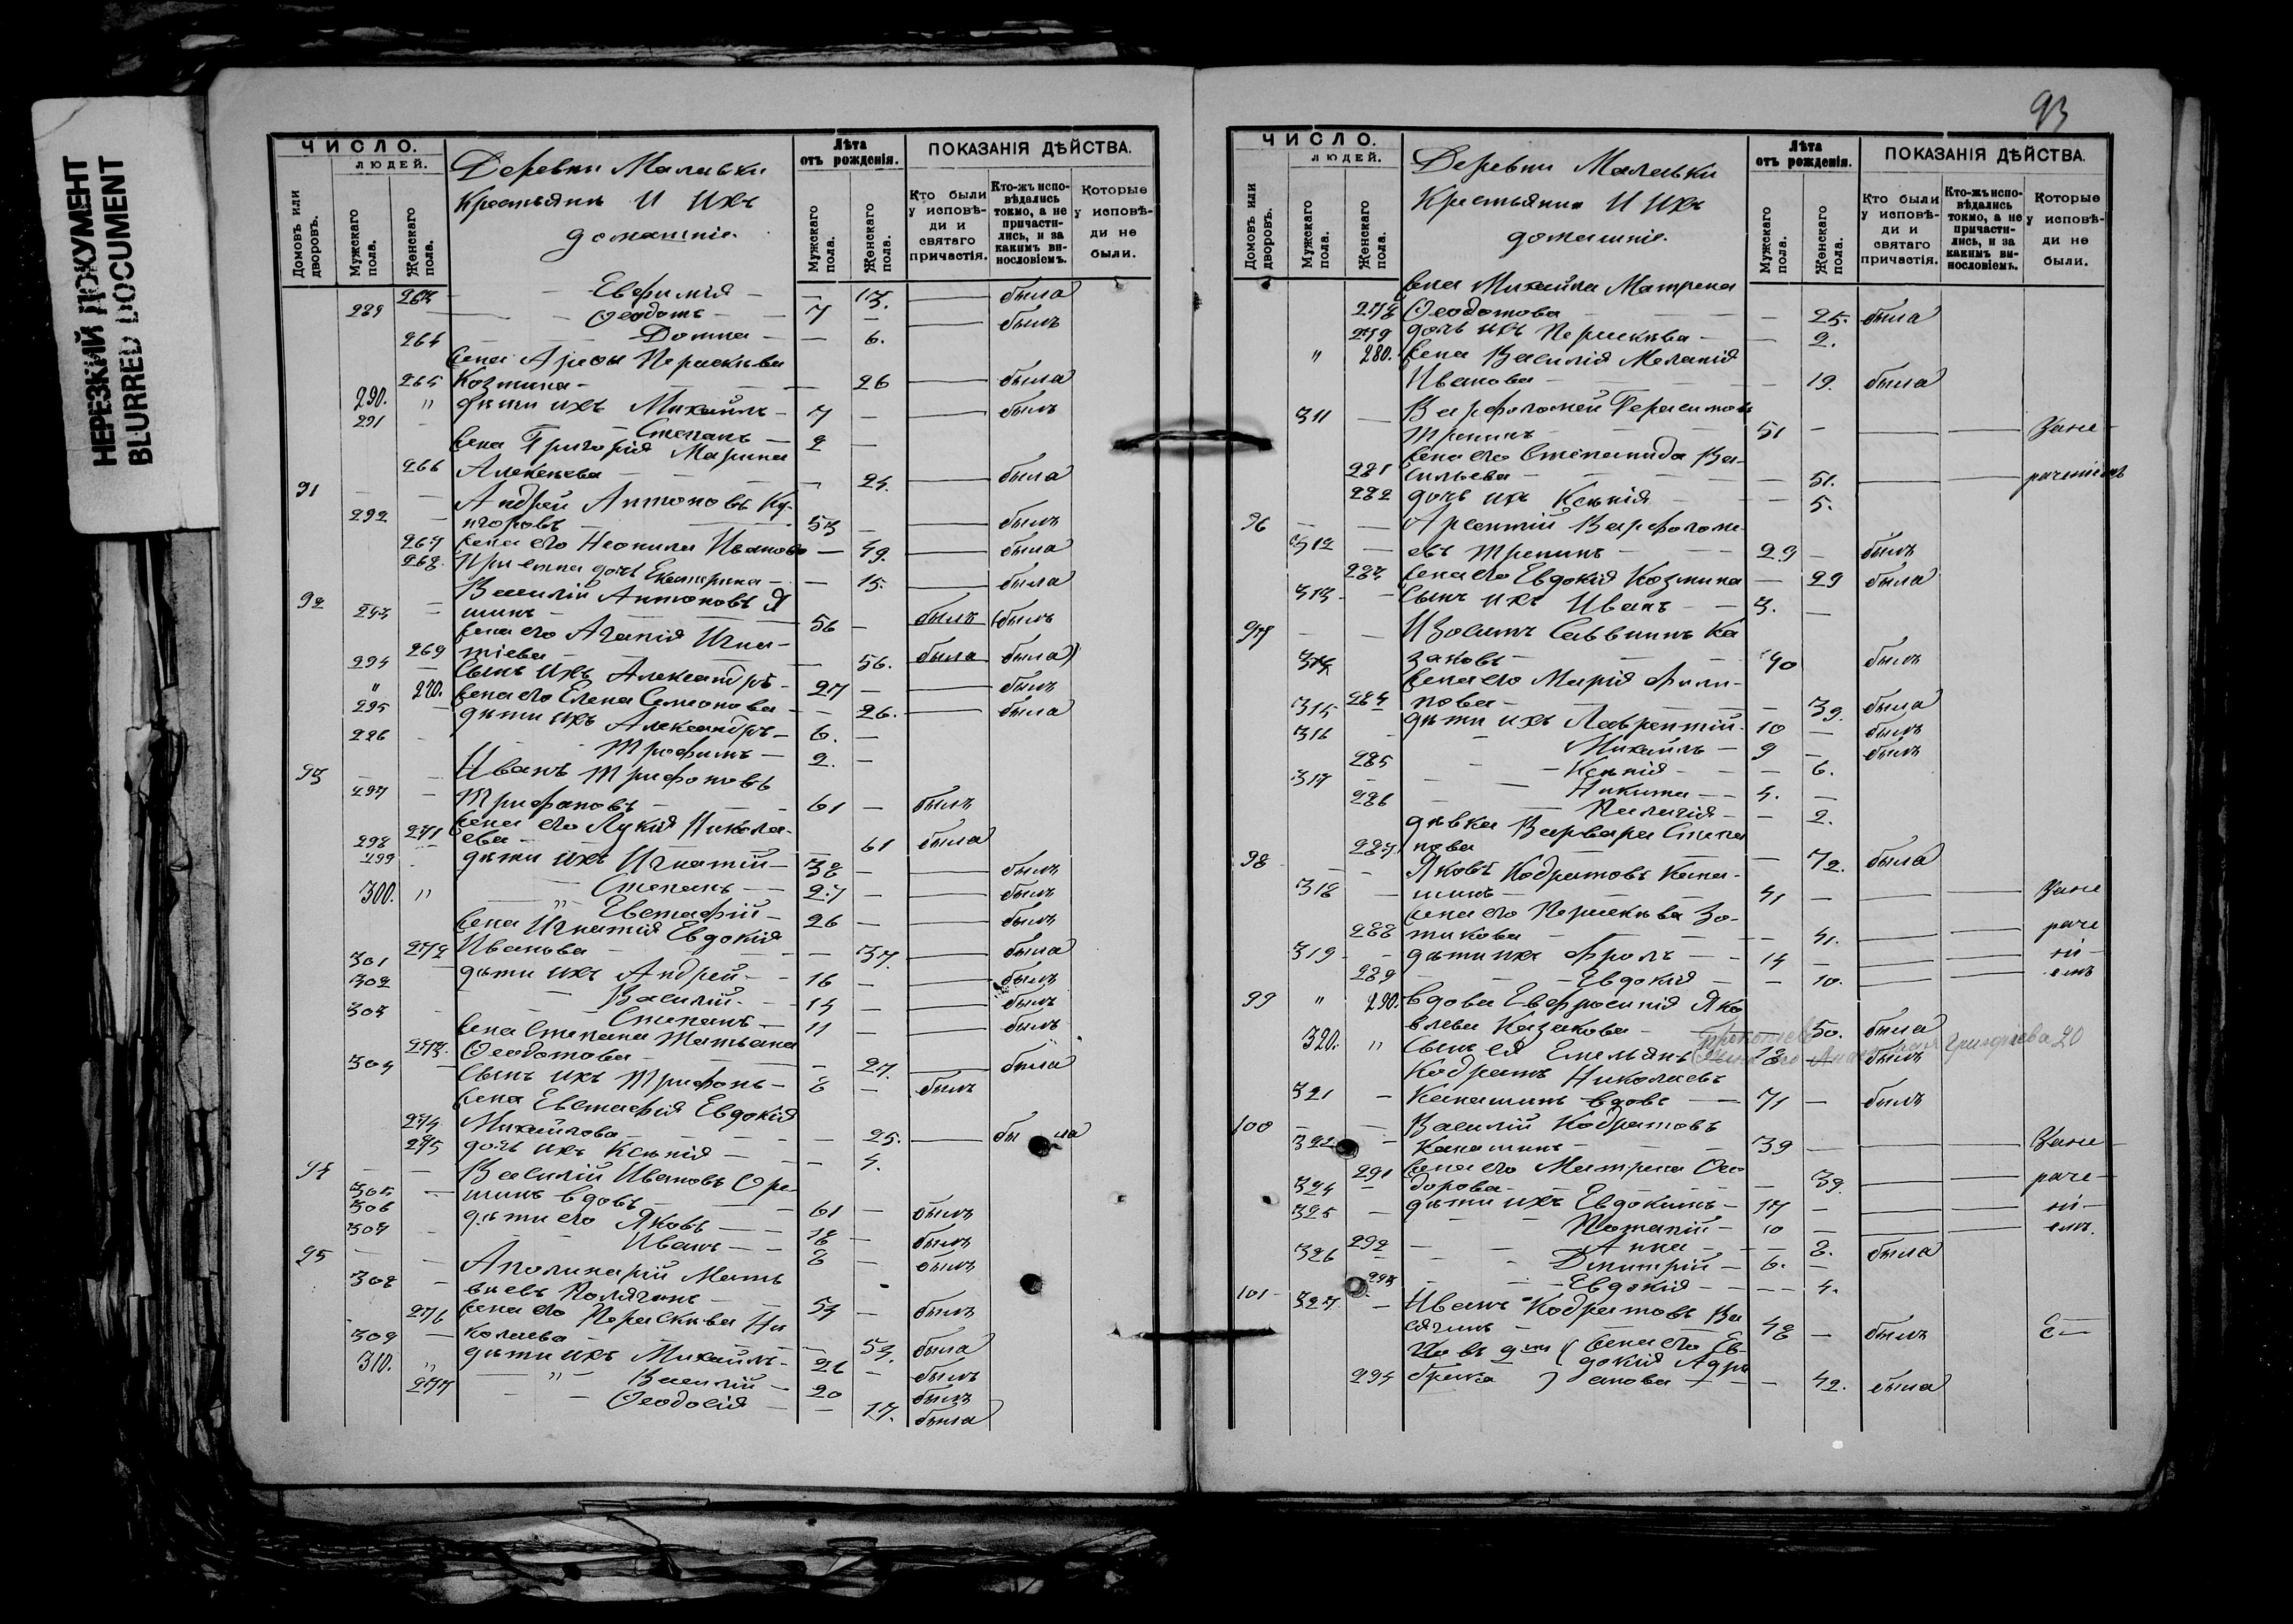 НЕРЕЗКИЙ ДОКУМЕНТ
BLURRED DOCUMENT
ЧИСЛО.
ЛЮДЕЙ.
Домовъ или дворовъ.
Мужскаго пола.
Женскаго пола.
Деревни Малавки
Крестьянъ и ихъ
домашніе.
Лѣта отъ рожденія.
Мужскаго пола.
Женскаго пола.
ПОКАЗАНІЯ ДѢЙСТВА.
Кто были у исповѣди и святаго причастія.
Кто-жъ исповѣдались токмо, а не причастились, и за какимъ винословіемъ.
Которые у исповѣди не были.
263 Евфимія — 13. — была
289 Ѳеодотъ 7 — была
264 Домна — 6.
жена Араѳы Параскева
265 Козмина — 26 — была
290. " дѣти ихъ Михаилъ 7 — былъ
291 Степанъ — 2 —
жена Григорія Марина
266 Алексѣева — 24. — была
91 Андрей Антоновъ Ку-
292 — 53 — былъ
267 жена его Неонила Иванова — 49. — была
268. Пріемна дочь Екатерина — 15. — была
92 Василій Антоновъ Я
293 шинъ — 56 — былъ (былъ
жена его Агапія Игна-
269 тіева — 56. была была)
294 сынъ ихъ Александръ 27 — былъ
" 270. жена его Елена Семионова — 26. — была
295 дѣти ихъ Александръ 6. —
296 Трофимъ — 2. —
93 Иванъ Трифоновъ
297 Трифановъ — 61 — былъ
жена его Лукія Никола-
271 ева — 61 была
298 дѣти ихъ Игнатій 38 — былъ
299 Степанъ 27 — былъ
300. " Евстафій 26 — былъ
жена Игнатія Евдокія
272 Иванова — 37. — была
301 дѣти ихъ Андрей 16 — былъ
302 Василій 14 — былъ
303 Степанъ 11 — былъ
жена Степана Татьяна
273. Ѳеодотова — 27. — была
304 сынъ ихъ Трифонъ 8 — былъ
жена Евстафія Евдокія
274 Михаилова — 25. — была
275 дочь ихъ Ксенія — 4.
94 Василій Ивановъ Оре-
305 шинъ вдовъ 61 — былъ
306 дѣти его Яковъ 18 — былъ
307 Иванъ 8 — былъ
95 Аполинарій Матѳ
308 вѣевъ 54 — былъ
276 жена его Параскева Ни
колаева — 54. была
309 дѣти ихъ Михаилъ 26 — былъ
310. " Василій 20 былъ
277 Ѳеодосія — 17. была
93
ЧИСЛО.
ЛЮДЕЙ.
Домовъ или дворовъ.
Мужскаго пола.
Женскаго пола.
Деревни Малавки
Крестьянъ и ихъ
домашніе.
Лѣта отъ рожденія.
Мужскаго пола.
Женскаго пола.
ПОКАЗАНІЯ ДѢЙСТВА.
Кто были у исповѣди и святаго причастія.
Кто-жъ исповѣдались токмо, а не причастились, и за какимъ винословіемъ.
Которые у исповѣди не были.
жена Михаила Матрена
278 Ѳеодотова — 25. была
279 дочь ихъ Параскева — 2.
" 280. жена Василія Меланія
Иванова — 19. была
311 Варфоломей Герасимовъ
Тренинъ 51 — Зане-
жена его Степанида Ва-
281 сильева — 51. — раченіемъ
282 дочь их Ксенія — 5.
96 Арсентій Варфоломе-
312 евъ Тренинъ 29 — былъ
283 жена его Евдокія Козмина — 29 была
313 сынъ ихъ Иванъ 3. —
97 Изосимъ Саввинъ Ка
314 заковъ 40 былъ
жена его Марія Фили-
284 пова — 39. была
315 дѣти ихъ Лаврентій 10 — былъ
316 Михаилъ 9 — былъ
285 Ксенія — 6.
317 Никита 4. —
286 Палагія — 2.
дѣвка Варвара Степа
287 нова — 72. была
98 Яковъ Кодратовъ Кана-
318 шинъ 41 — Зане
жена его Параскева Зо-
288 тикова — 41. — раче
319 дѣти ихъ Фролъ 14 — ні-
289 Евдокія — 10. — емъ
99 " 290. вдова Евфросинія Яко
влева Казакова — 50. была
320. " сынъ ея Емельянъ Прокопіевъ 18 былъ
жена его Анастасія Григорьева 20
Кодратъ Николаевъ
321 Канашинъ вдовъ 71 — былъ
100 Василій Кодратовъ
322 Канашинъ 39 — Зане
291 жена его Матрена Ѳео
дорова — 39. — раче-
324 дѣти ихъ Евдокимъ 17 — ні-
325 Потапій 10 — емъ.
292 Анна — 8. была
326 Димитрій 6. —
293 Евдокія — 4.
101 327 Иванъ Кодратовъ Ва
48 — былъ
жена его Ев-
докія Адрі
294 брака анова — 42. была